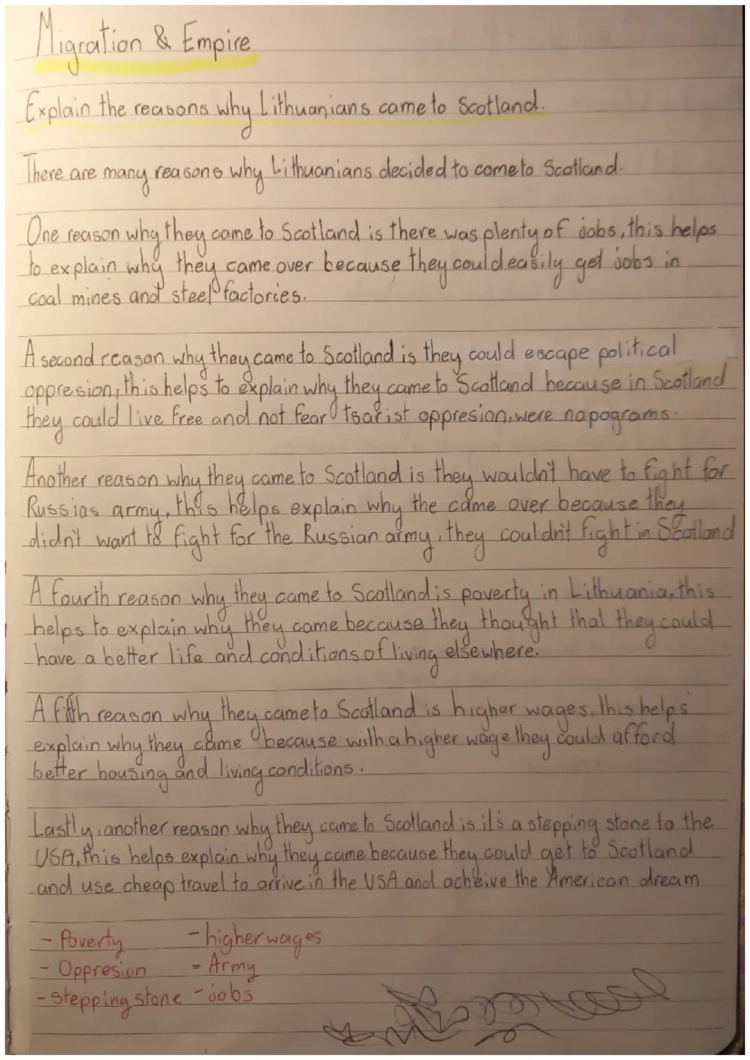 Migration & Empire
Explain the reasons why Lithuanians came to Scotland.
There are many reasons why Lithuanians decided to come to Scotland.
One reason why they came to Scotland is there was plenty of jobs, this helps
to explain why they came over because they could easily get jobs in
coal mines and steel factories.
A second reason why they came to Scotland is they could escape political
oppresion, this helps to explain why they came to Scotland because in Scotland
they could live free and not fear tsarist oppresion, were no pograms.
Another reason why they came to Scotland is they wouldn't have to fight for
Russias army, this helps explain why the came over because they
didn't want to fight for the Russian army, they couldn't fight in Scotland
A fourth reason why they came to Scotland is poverty in Lithuania, this
helps to explain why they came because they thought that they could
have a better life and conditions of living elsewhere.
A fifth reason why they came to Scotland is higher wages, this helps
explain why they came because with a higher wage they could afford
better housing and living conditions.
Lastly, another reason why they came to Scotland is it's a stepping stone to the
USA, this helps explain why they came because they could get to Scotland
and use cheap travel to arrive in the USA and acheive the American dream
- Poverty - higher wages
- Oppresion - Army
- stepping stone - jobs